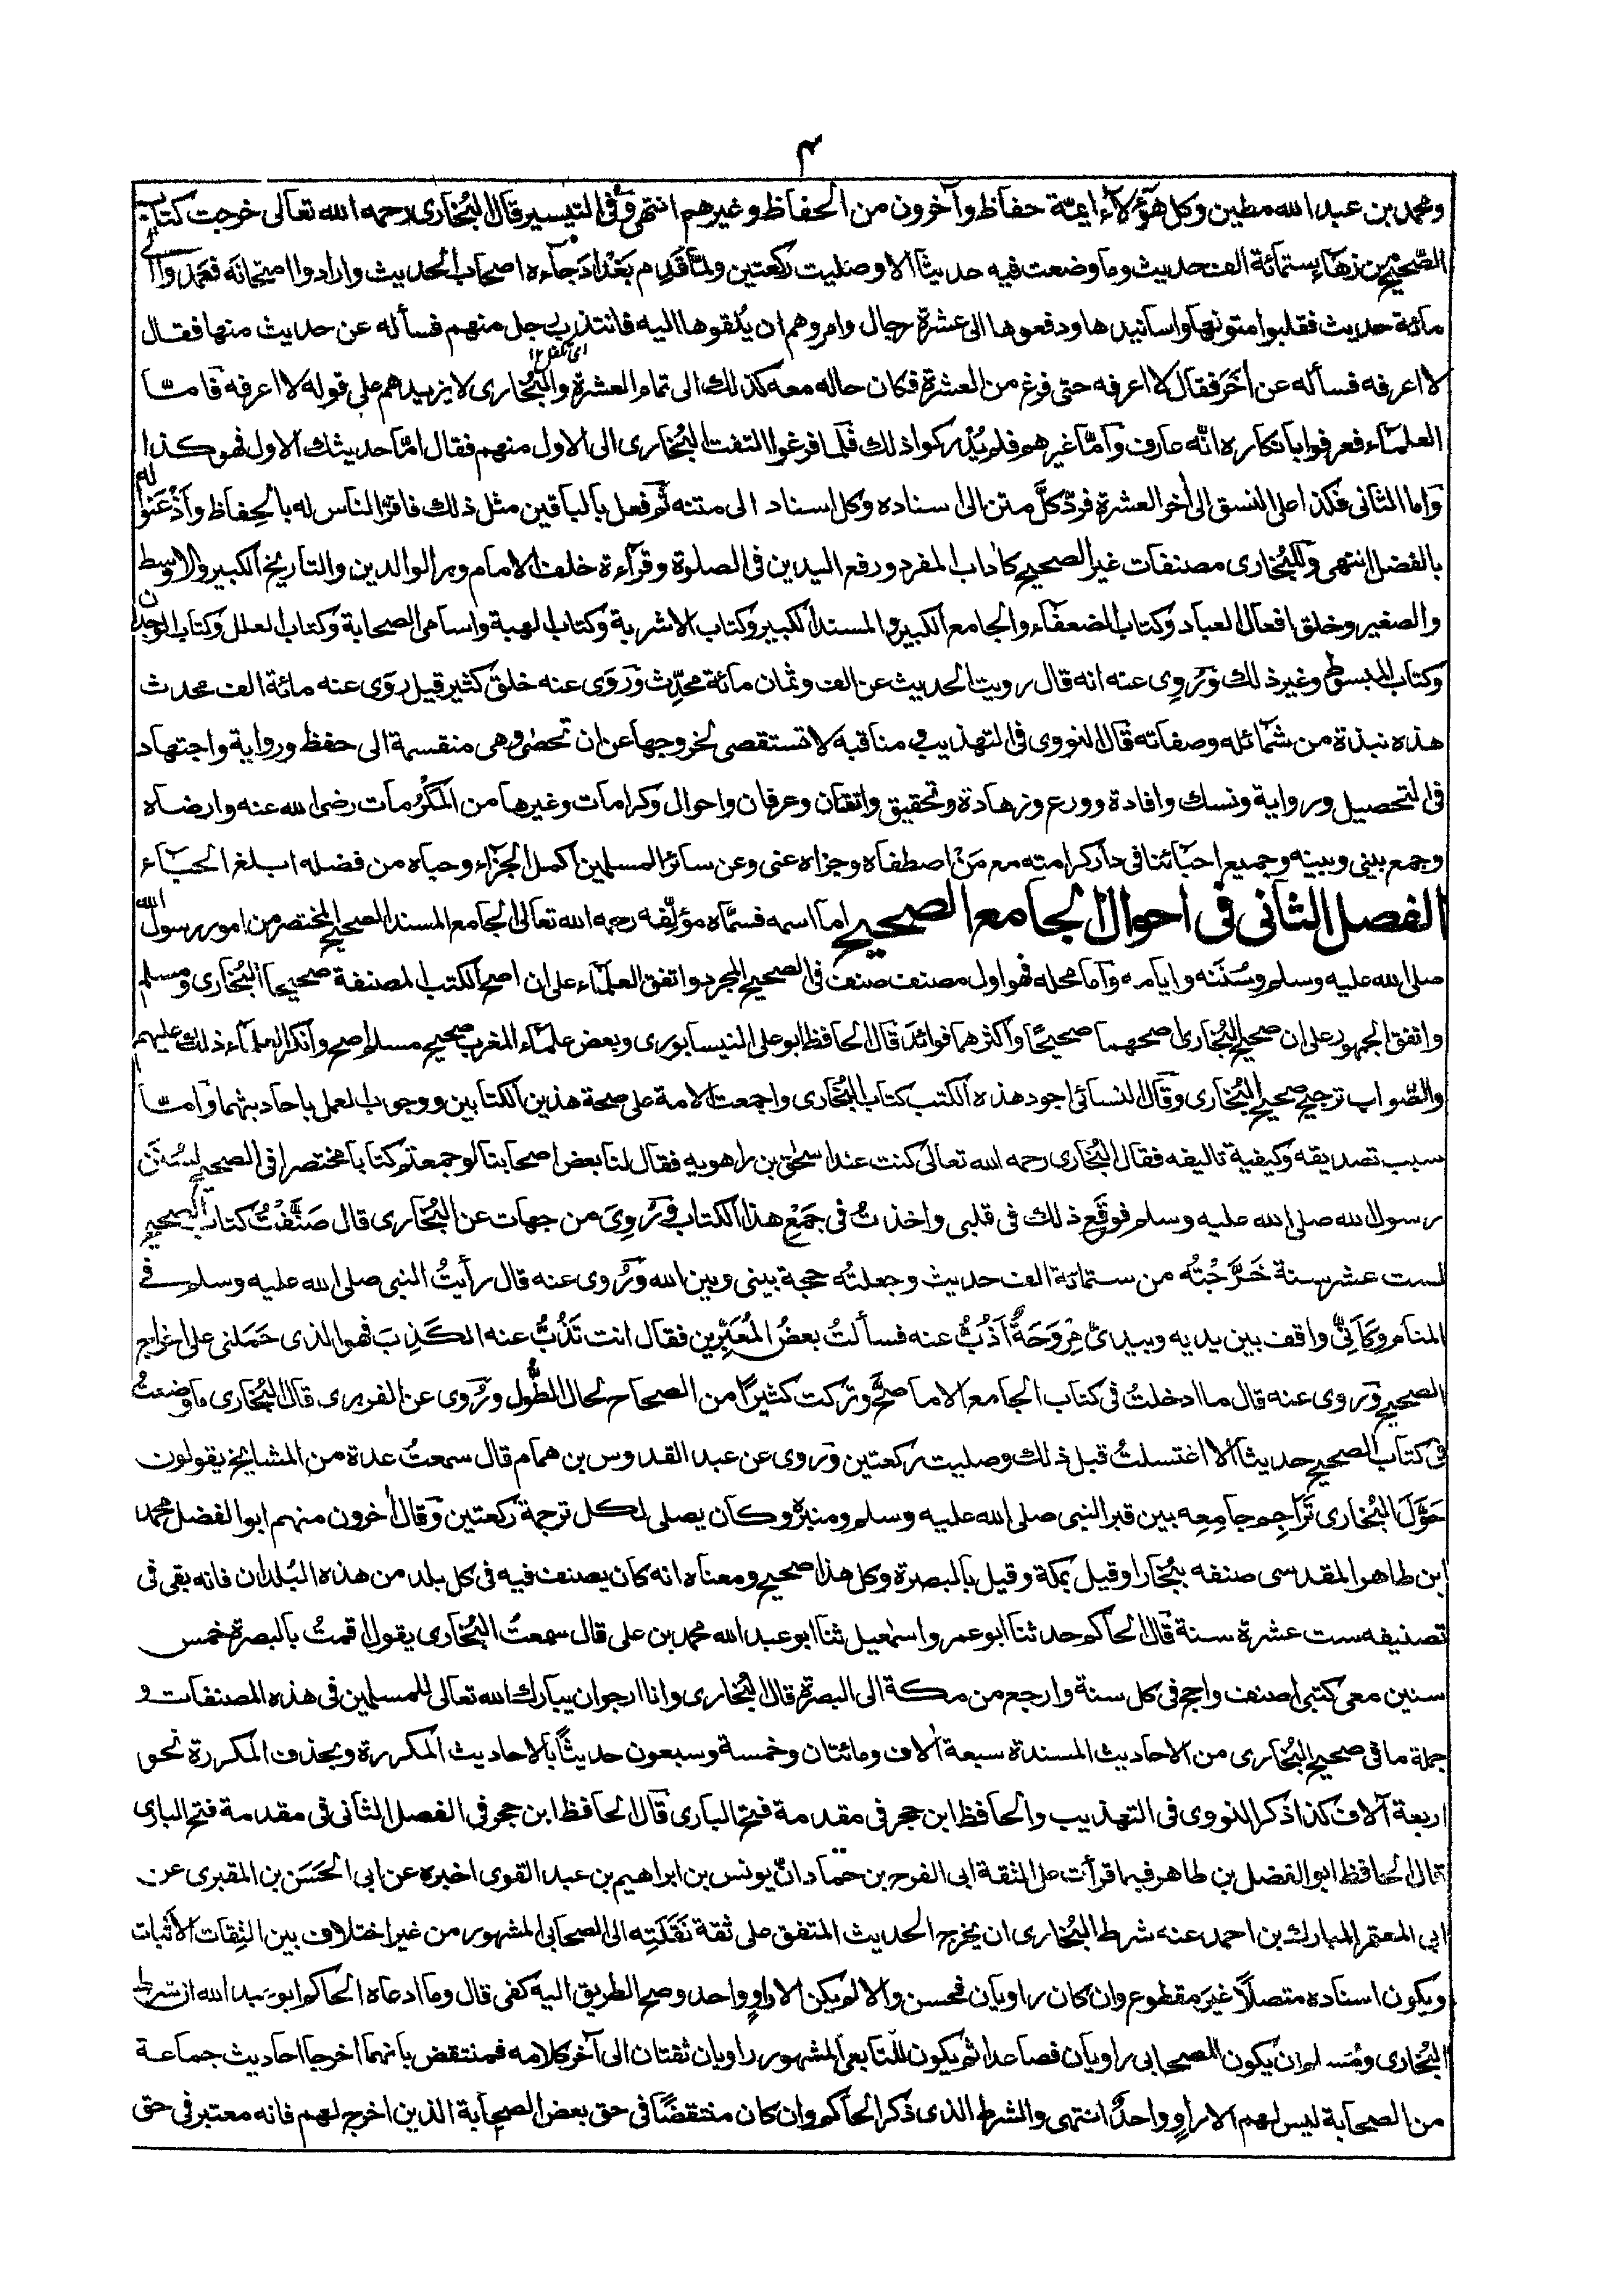 ٣
ومحمد بن عبد الله مطين وكل هؤلاء ائمة حفاظ وآخرون من الحفاظ وغيرهم انتهى وفى التيسير قال البُخارى رحمه الله تعالى خرجت كتاب
الصّحيح من زهَاء ستمائة الف حديث وما وضعت فيه حديثا الا وصليت ركعتين ولمّا قَدِم بَغْدادَ جآءه اصحاب الحديث وارادوا امتحانه فعَمَدوا الى
مائة حديث فقلبوا متونها واسانيدها ودفعوها الى عشرة رجال وامروهم ان يُلقوها اليه فانتدب رجل منهم فسأله عن حديث منها فقال
لا اعرفه فسأله عن آخَرَ فقال لا اعرفه حتى فرغ من العشرة فكان حاله معه كذلك الى تمام العشرة والبُخارى لا يزيدهم على قوله لا اعرفه فامّا
العلمآء فعرفوا بانكاره انّه عارف وامّا غيرهم فلم يُدركوا ذلك فلما فرغوا التفت البُخارى الى الاول منهم فقال امّا حديثك الاول فهو كذا
واما الثانى فكذا على النسق الى آخر العشرة فردّ كلَّ متن الى اسناده وكل اسناد الى متنه ثم فعل بالباقين مثل ذلك فاقرّ الناس له بالحِفاظ واَذْعَنوا له
بالفضل انتهى وللبُخارى مصنفات غير الصحيح كاداب المفرد ورفع اليدين فى الصلوة وقرآءة خلف الامام وبر الوالدين والتاريخ الكبير والاوسط
والصغير وخلق افعال العباد وكتاب الضعفآء والجامع الكبير والمسند الكبير وكتاب الاشربة وكتاب الهبة واسامى الصحابة وكتاب العلل وكتاب الوجدان
وكتاب المبسوط وغير ذلك ورُوِى عنه انه قال رويت الحديث عن الف وثمان مائة محدِّث ورَوَى عنه خلق كثير قيل روَى عنه مائة الف محدث
هذه نبذة من شمائله وصفاته قال النووى فى التهذيب ومناقبه لا تستقصى لخروجها عن ان تحصٰى وهى منقسمة الى حفظ ورواية واجتهاد
فى التحصيل ورواية ونسك وافادة وورع وزهادة وتحقيق واتقان وعرفان واحوال وكرامات وغيرها من المَكْرُمات رضى الله عنه وارضاه
وجمع بينى وبينه وجميع احبّائنا فى دار كرامته مع مَنْ اصطفاه وجزاه عنى وعن سائر المسلمين اكمل الجزآء وحباه من فضله ابلغ الحبآء
الفصل الثانى فى احوال الجامع الصحيح اما اسمه فسمّاه مؤلّفه رحمه الله تعالى الجامع المسند الصحيح المختصر من امور رسول الله
صلى الله عليه وسلم وسُنَنه وايامه واما محله فهو اول مصنف صنف فى الصحيح المجرد واتفق العلمآء على ان اصح الكتب المصنفة صحيحا البُخارى ومسلم
واتفق الجمهور على ان صحيح البُخارى اصحهما صحيحًا واكثرهما فوائدَ قال الحافظ ابو على النيسابورى وبعض علمآء المغرب صحيح مسلم اصح وانكر العلمآء ذلك عليهم
والصّواب ترجيح صحيح البُخارى وقال النسائى اجود هذه الكتب كتاب البُخارى واجمعت الامة على صحة هذين الكتابين ووجوب العمل باحاديثهما وامّا
سبب تصديقه وكيفية تاليفه فقال البُخارى رحمه الله تعالى كنت عند اسحٰق بن راهويه فقال لنا بعض اصحابنا لو جمعتم كتابا مختصرا فى الصحيح لسُنن
رسول الله صلى الله عليه وسلم فوقَع ذلك فى قلبى واخذتُ فى جَمْعِ هذا الكتاب ورُوِىَ من جهات عن البُخارى قال صَنَّفْتُ كتاب الصحيح
لست عشر سنة خَرَّجْتُه من ستمائة الف حديث وجعلتُه حجة بينى وبين الله ورُوى عنه قال رأيتُ النبى صلى الله عليه وسلم فى
المنام وكأنِّىْ واقف بين يديه وبيدىْ مِرْوَحَةٌ اَذُبُّ عنه فسألتُ بعضُ المُعَبِّرين فقال انت تَذُبُّ عنه الكَذِبَ فهو الذى حَمَلنى على اخراج
الصحيح ورُوى عنه قال ما ادخلتُ فى كتاب الجامع الا ما صحَّ وتركت كثيرًا من الصحاح لحال الطُّول ورُوى عن الفربرى قال البُخارى ما وضعتُ
فى كتاب الصحيح حديثا الا اغتسلتُ قبل ذلك وصليت ركعتين ورُوى عن عبد القدوس بن همام قال سمعتُ عدة من المشايخ يقولون
حَوَّلَ البُخارى تَرَاجِم جامِعِه بين قبر النبى صلى الله عليه وسلم ومنبره وكان يصلى لكل ترجمة ركعتين وقال آخرون منهم ابو الفضل محمد
ابن طاهر المقدسى صنفه ببُخارا وقيل بمكة وقيل بالبصرة وكل هذا صحيح ومعناه انه كان يصنف فيه فى كل بلد من هذه البُلدان فانه بقى فى
تصنيفه ست عشرة سنة قال الحاكم حدثنا ابو عمرو اسمٰعيل ثنا ابو عبد الله محمد بن على قال سمعتُ البُخارى يقول اقمتُ بالبصرة خمس
سنين معى كتبى اصنف واحج فى كل سنة وارجع من مكة الى البصرة قال البُخارى وانا ارجو ان يبارك الله تعالى للمسلمين فى هذه المصنفات و
جملة ما فى صحيح البُخارى من الاحاديث المسندة سبعة آلاف ومائتان وخمسة وسبعون حديثًا بالاحاديث المكررة وبحذف المكررة نحو
اربعة آلاف كذا ذكر النووى فى التهذيب والحافظ ابن حجر فى مقدمة فتح البارى قال الحافظ ابن حجر فى الفصل الثانى فى مقدمة فتح البارى
قال الحافظ ابو الفضل بن طاهر فيما قرأت على الثقة ابى الفرح بن حمّاد انّ يونس بن ابراهيم بن عبد القوى اخبره عن ابى الحَسَن بن المقبرى عن
ابى المعتمر المبارك بن احمد عنه شرط البُخارى ان يخرج الحديث المتفق على ثقة نَقَلَتِه الى الصحابى المشهور من غير اختلاف بين الثِقات الأثبات
ويكون اسناده متصلًا غيرَ مقطوع وان كان راويان فحسن والا لم يكن الا راوٍ واحد وصح الطريق اليه كفى قال وما ادعاه الحاكم ابو عبد الله ان شرط
البُخارى ومُسلم ان يكون للصحابى راويان فصاعدا ثم يكون للتّابعى المشهور راويان ثقتان الى آخر كلامه فمنتقض بانهما اخرجا احاديث جماعة
من الصحابة ليس لهم الا راوٍ واحدٌ انتهى والشرط الذى ذكر الحاكم وان كان منتقضًا فى حق بعض الصحابة الذين اخرج لهم فانه معتبر فى حق